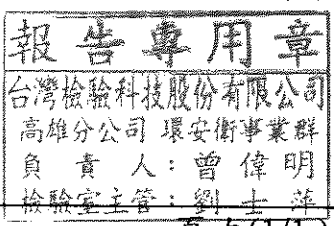 報告專用章
台灣檢驗科技股份有限公司
高雄分公司 環安衛事業群
負責人：曾偉明
檢驗室主管：劉士萍
(1/1)